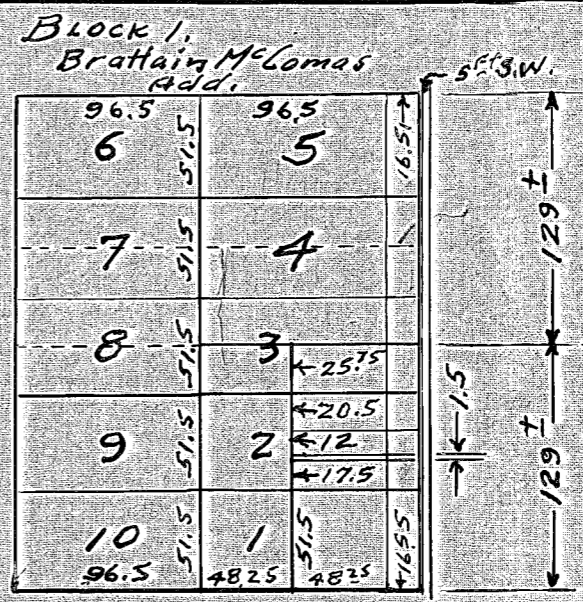 BLOCK 1.
Brattain McComas
Add.
5 Ft S.W.
96.5 96.5
6 51.5 5 16.51
129 ±
7 51.5 4
8 51.5 3
25.75
20.5
1.5
9 51.5 2 12
17.5
129 ±
10 51.5 1 51.5 16.55
96.5 48.25 48.25